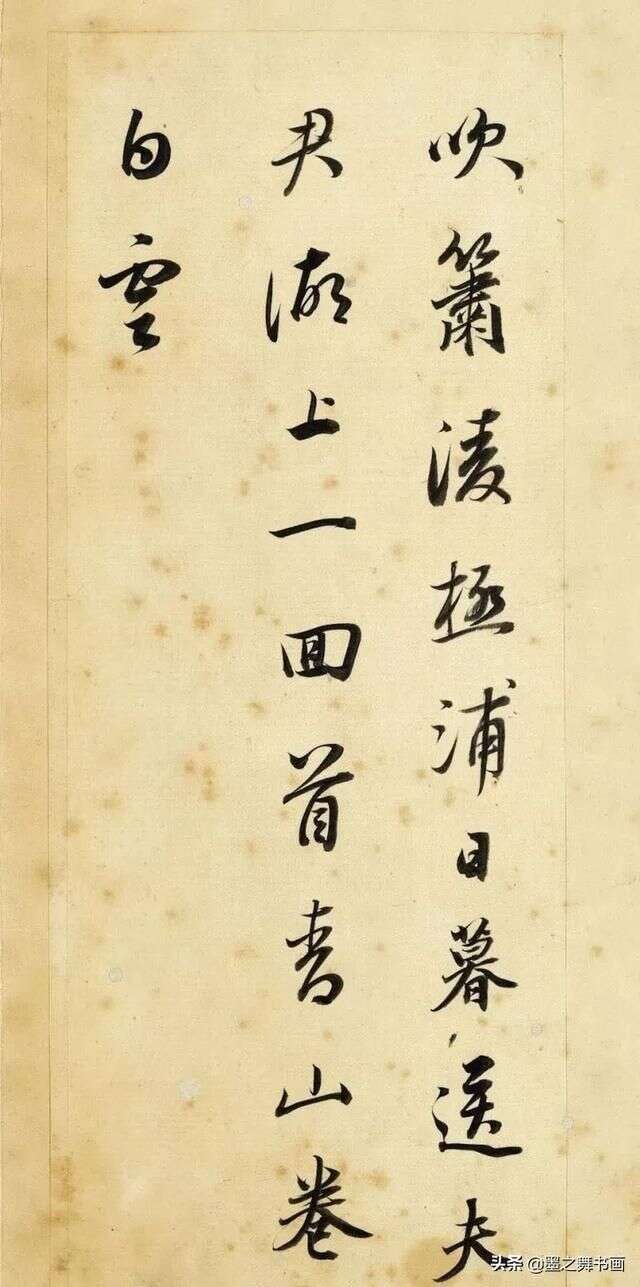 吹簫凌極浦日暮送夫
君湖上一回首青山卷
白雲
头条@墨之舞书画